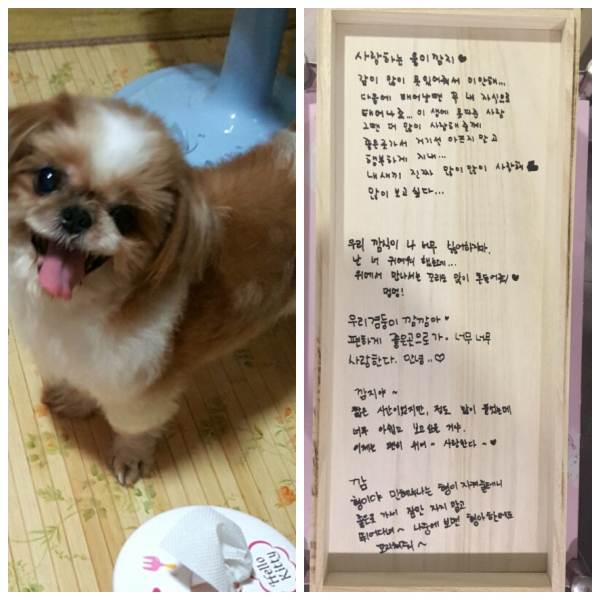 사랑하는 울이깜지♥
같이 많이 못있어줘서 미안해...
다음에 태어날땐 꼭 내 자식으로
태어나줘... 이 생에 못다준 사랑
그땐 더 많이 사랑해줄께
좋은곳가서 거기선 아프지 말고
행복하게 지내...
내새끼 진짜 많이많이 사랑해♥
많이 보고싶다...
우리 깜지이 나 너무 싫어하지마.
난 너 귀여워 했는데...
위에서 만나서는 꼬리도 많이 흔들어줘♥
멍멍!
우리겸둥이 깜깜아♥
편하게 좋은곳으로가. 너무너무
사랑한다. 안녕..♡
깜지야~
짧은 시간이었지만, 정도 많이 들었는데
너무 아쉽고 보고싶을 거야.
이제는 편히 쉬어~ 사랑한다~♥
깜
형이다 민혜누나는 형이 지켜줄테니
좋은곳 가서 잠만 자지 말고
뛰어다녀~ 나중에 보면 형아한테도
꼬리쳐줘~
Hello
Kitty